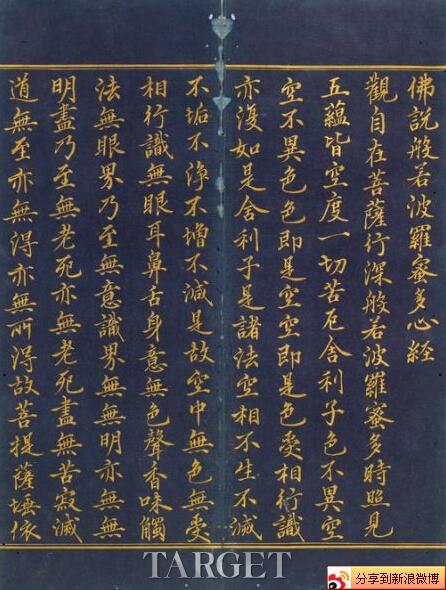 佛説般若波羅蜜多心經
觀自在菩薩行深般若波羅蜜多時照見
五蘊皆空度一切苦厄舍利子色不異空
空不異色色即是空空即是色受相行識
亦復如是舍利子是諸法空相不生不滅
不垢不淨不增不減是故空中無色無受
相行識無眼耳鼻舌身意無色聲香味觸
法無眼界乃至無意識界無無明亦無無
明盡乃至無老死亦無老死盡無苦寂滅
道無至亦無得亦無所得故菩提薩埵依
TARGET
分享到新浪微博